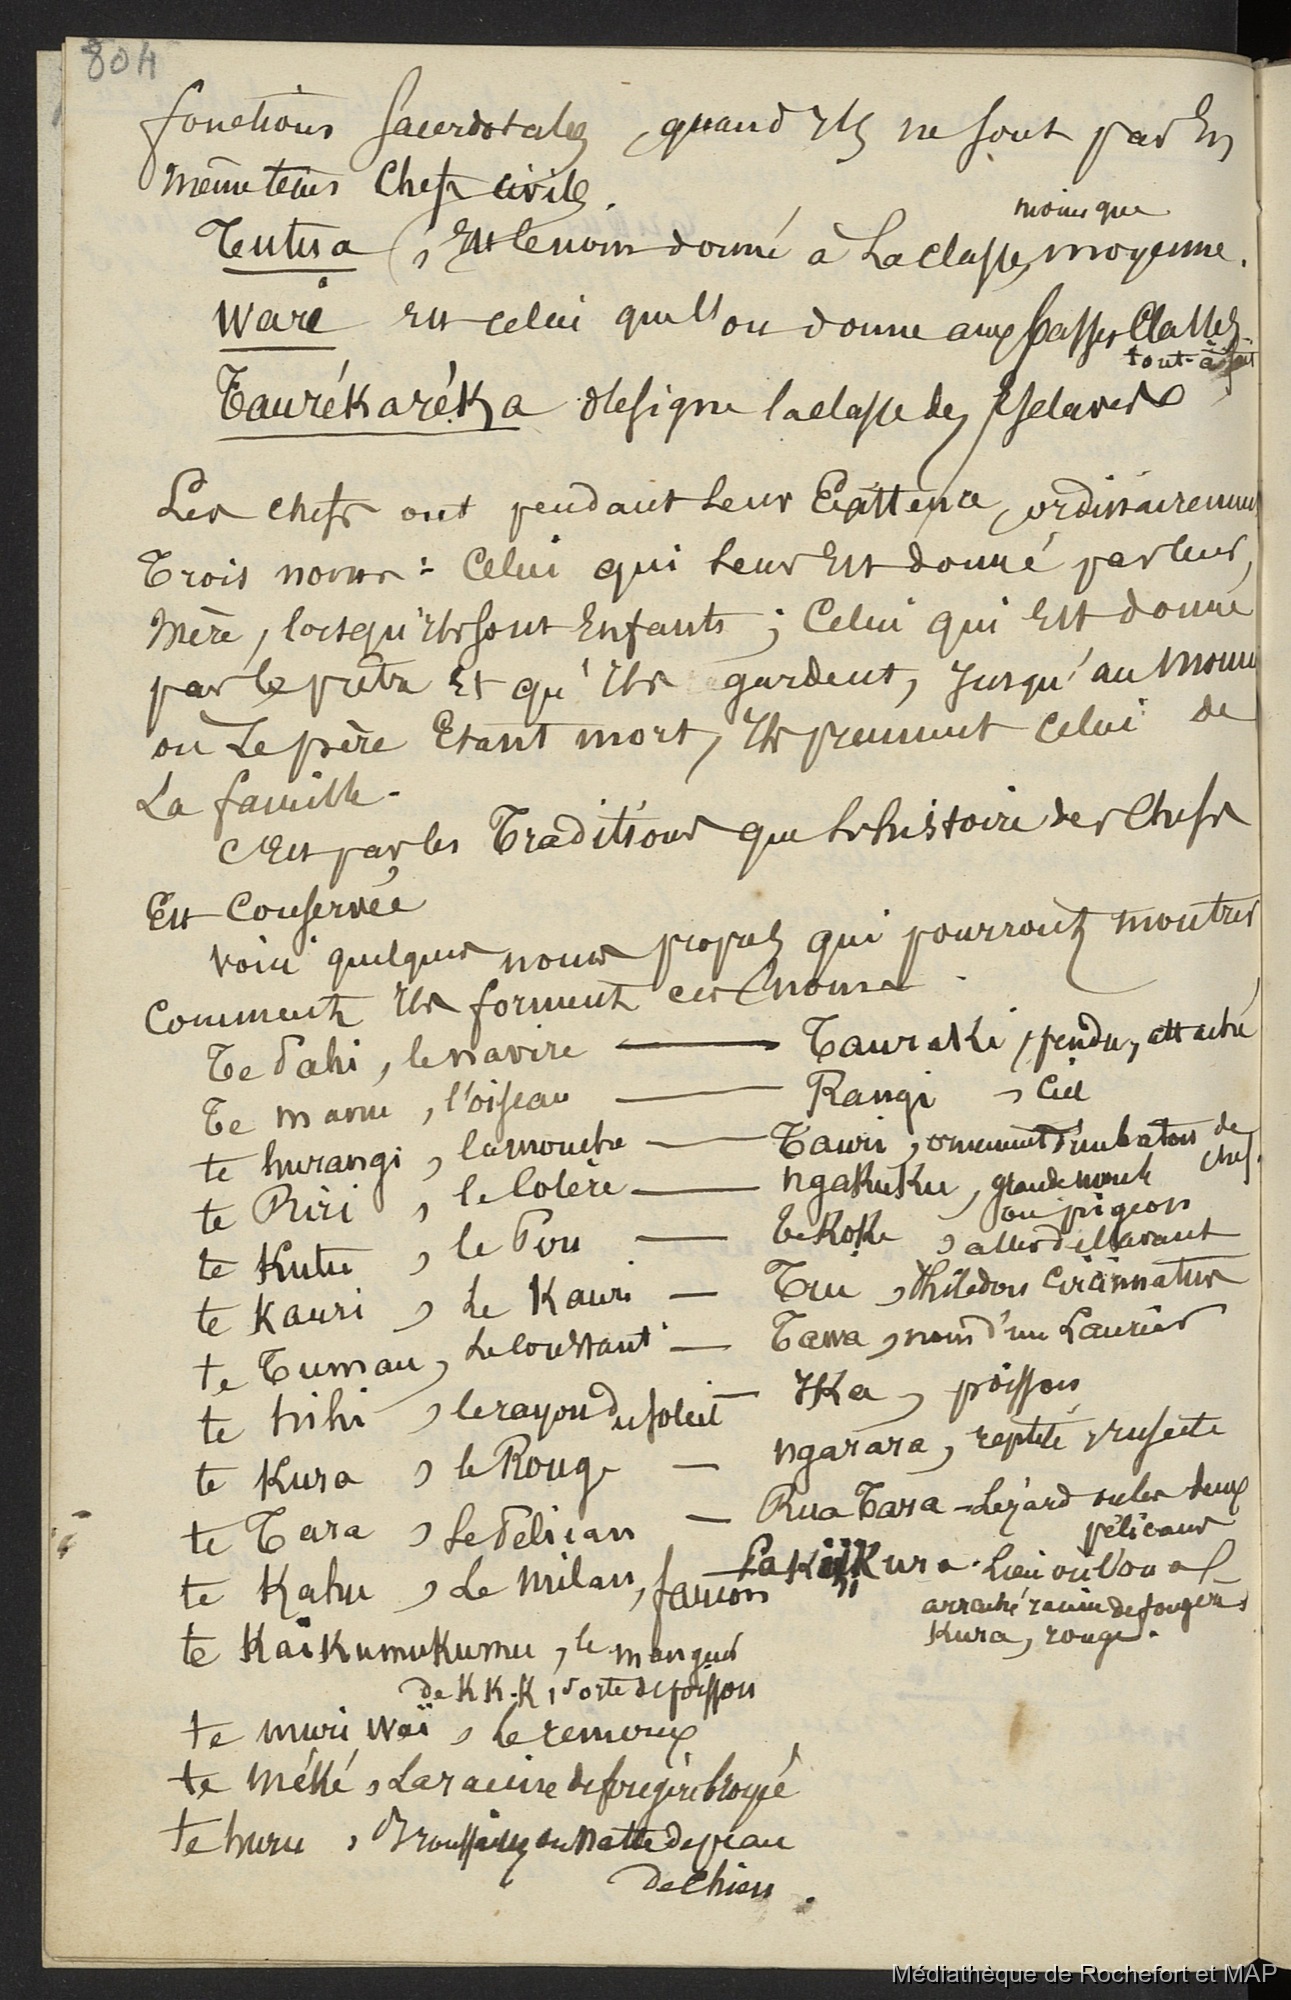 804
fonctions sacerdotales, quand ils ne sont pas en
même tems chefs civils.
moins que
Tutua, est le nom donné à la classe moyenne.
Waré est celui que l'on donne aux basses classes
tout-à-fait
Taurékaréka désigne la classe des Esclaves
Les chefs ont pendant leur Existence, ordinairement
Trois noms : Celui qui leur Est donné par leur
mère, lorsqu'ils sont Enfants ; Celui qui Est donné
par le prêtre Et qu'ils gardent, jusqu'au mom
où Le père Etant mort, ils prennent Celui de
La famille.
C'Est par les Traditions que l'histoire des Chefs
Est Conservée
voici quelques noms propres qui pourront montrer
Comment ils forment ces noms
Te Pahi, le navire — Tauraki, pendu, attaché
Te manu, l'oiseau — Rangi, Ciel
te hurangi, la mouche — Tawri, ornement d'un baton de chef.
te Riri, le Colère — ngakuku, grande moule
ou pigeon
te Kutu, le Pou — te KoKi, aller de l'avant
te Kauri, Le Kauri — Tui, Philedon Circinnatus
te Tumau, Le Constant — Tawa, nom d'un Laurier
te hihi, le rayon du soleil — IKa, poisson
te Kura, le Rouge — ngarara, reptile, insecte
te Tara, Le Pélican — Rua Tara - Lézard ou les deux
pélicans
te Kahu, Le milan, faucon — Kura - Lieu où l'on a
arraché racine de fougère,
Kura, rouge.
te KaïKumuKumu, le manger
de K K.K, sorte de poisson
te muri waï, Le remoux
te méké, La racine de fougère broyée
te huru, Broussailles ou natte de peau
de chien.
Médiathèque de Rochefort et MAP